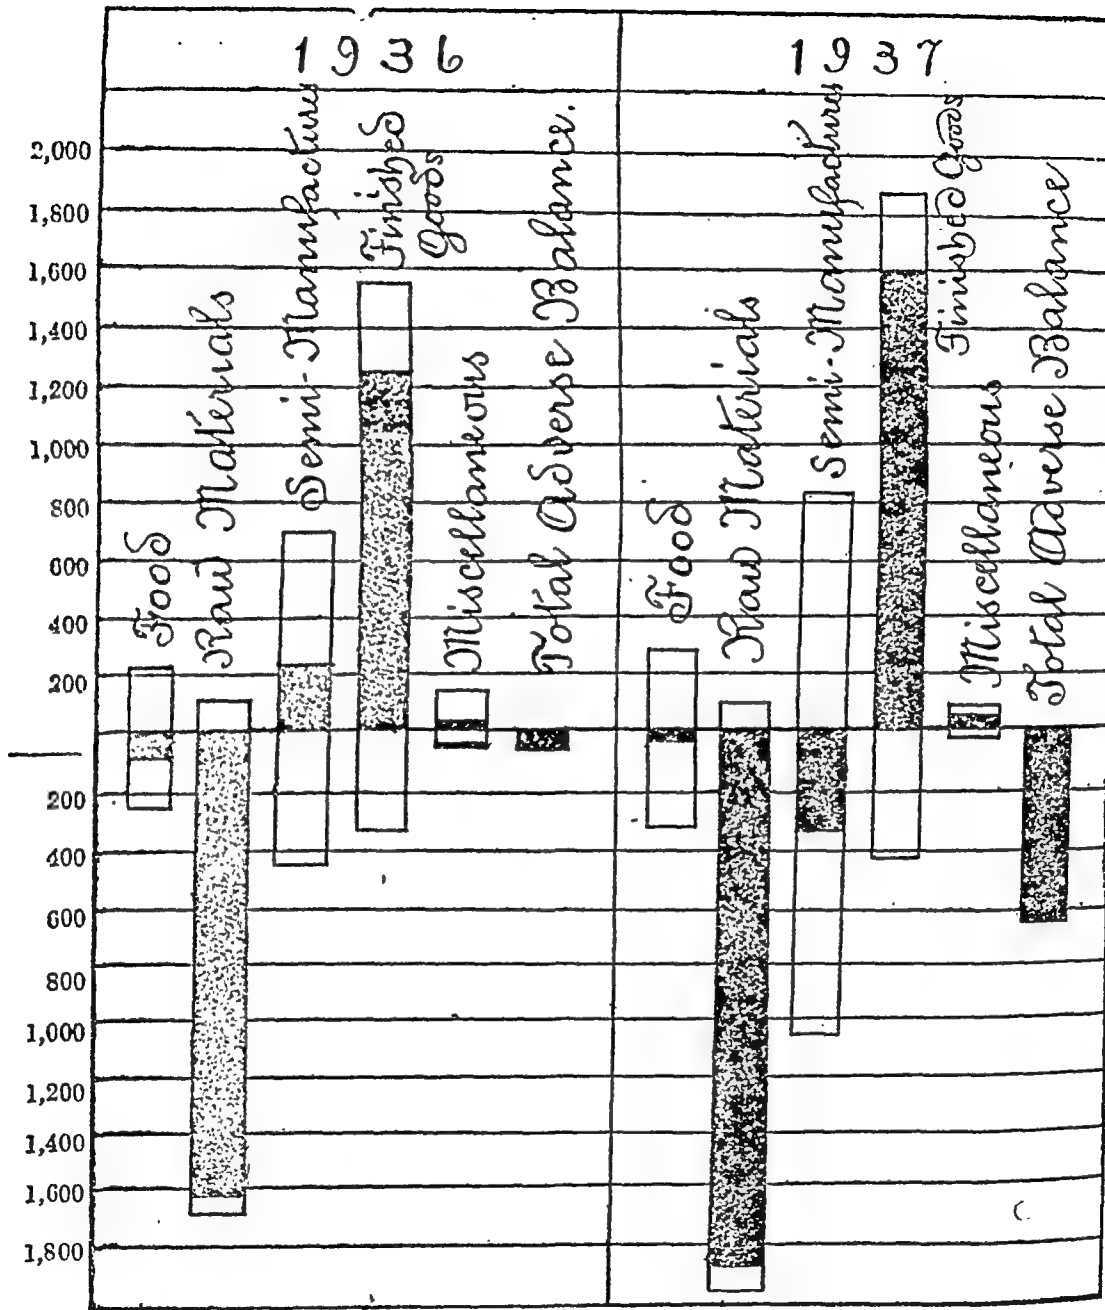 1936
1937
2,000
1,800
1,600
1,400
1,200
1,000
800
600
400
200
200
400
600
800
1,000
1,200
1,400
1,600
1,800
Food
Raw Materials
Semi-Manufactures
Finished
Goods
Miscellaneous
Total Adverse Balance.
Food
Raw Materials
Semi-Manufactures
Finished Goods
Miscellaneous
Total Adverse Balance